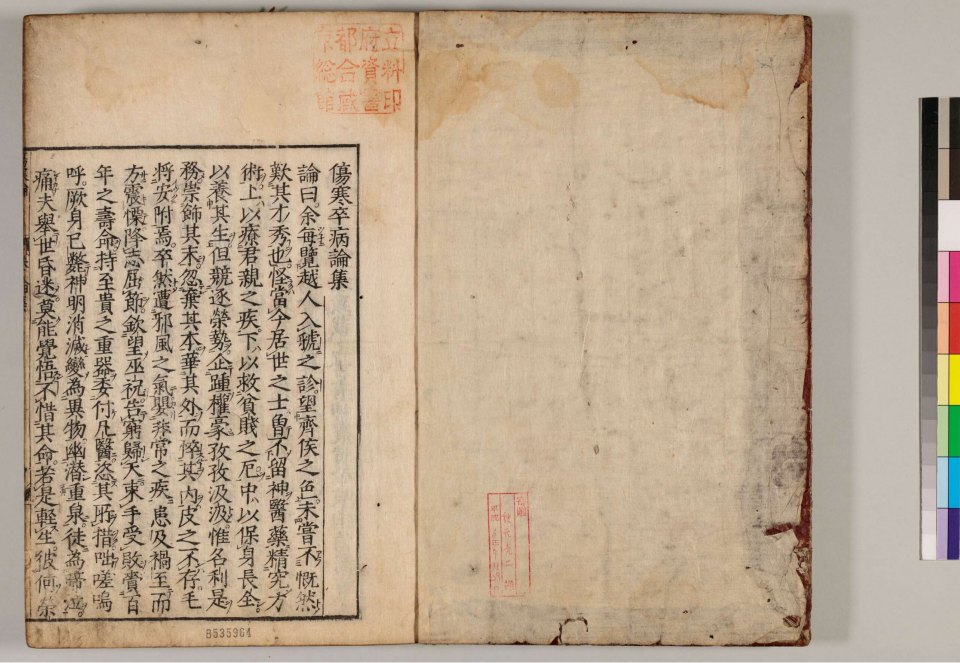 傷寒卒病論集
論曰余每覽越人入虢之診望齊侯之色未嘗不慨然
歎其才秀也怪當今居世之士曽不留神醫藥精究方
術上以療君親之疾下以救貧賤之厄中以保身長全
以養其生但競逐榮勢企踵權豪孜孜汲汲惟名利是
務崇飾其末忽棄其本華其外而悴其内皮之不存毛
将安附焉卒然遭邪風之氣嬰非常之疾患及禍至而
方震慄降志屈節欽望巫祝告窮歸天束手受敗賫百
年之壽命持至貴之重器委付凡醫恣其所措咄嗟嗚
呼厥身已斃神明消滅變為異物幽潜重泉徒為啼泣
痛夫舉世昏迷莫能覺悟不惜其命若是輕生彼何榮
B535964